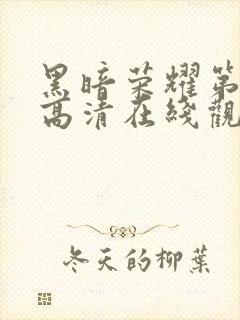 黑暗荣耀第
高清在线觀
冬天的柳葉